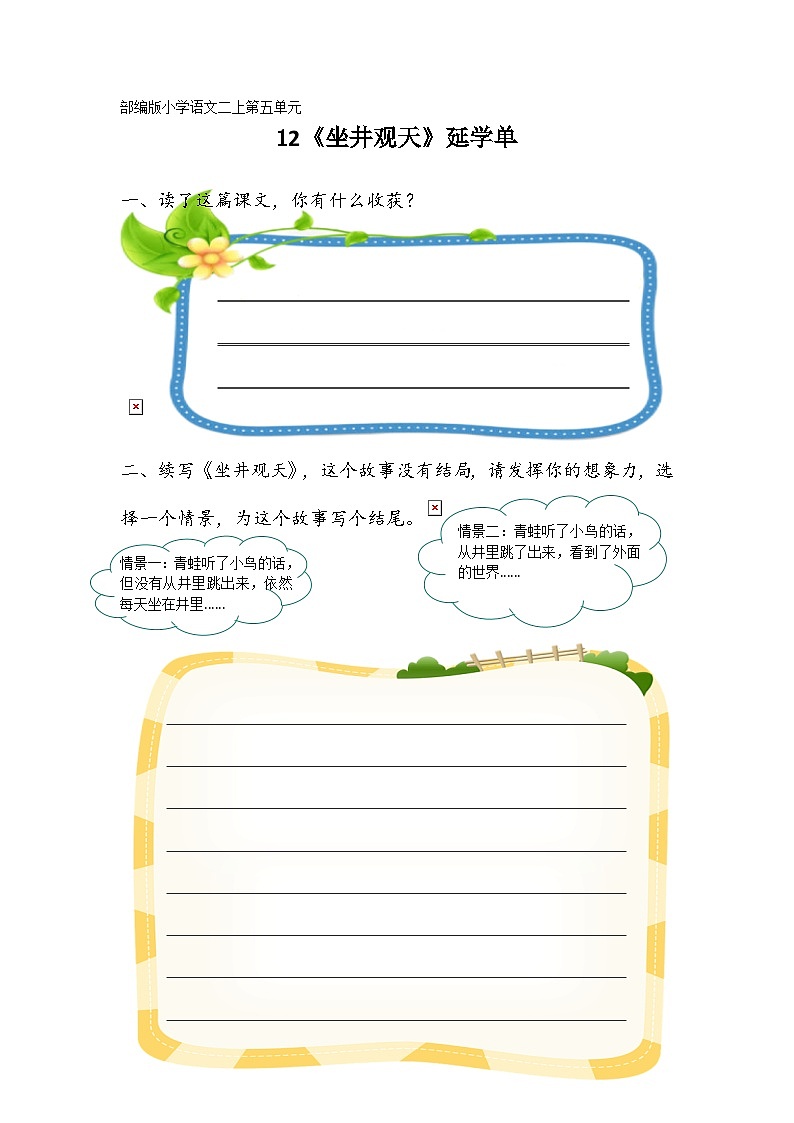 部编版小学语文二上第五单元
12《坐井观天》延学单
一、读了这篇课文，你有什么收获？
二、续写《坐井观天》，这个故事没有结局，请发挥你的想象力，选
择一个情景，为这个故事写个结尾。
情景一：青蛙听了小鸟的话，
但没有从井里跳出来，依然
每天坐在井里......
情景二：青蛙听了小鸟的话，
从井里跳了出来，看到了外面
的世界......